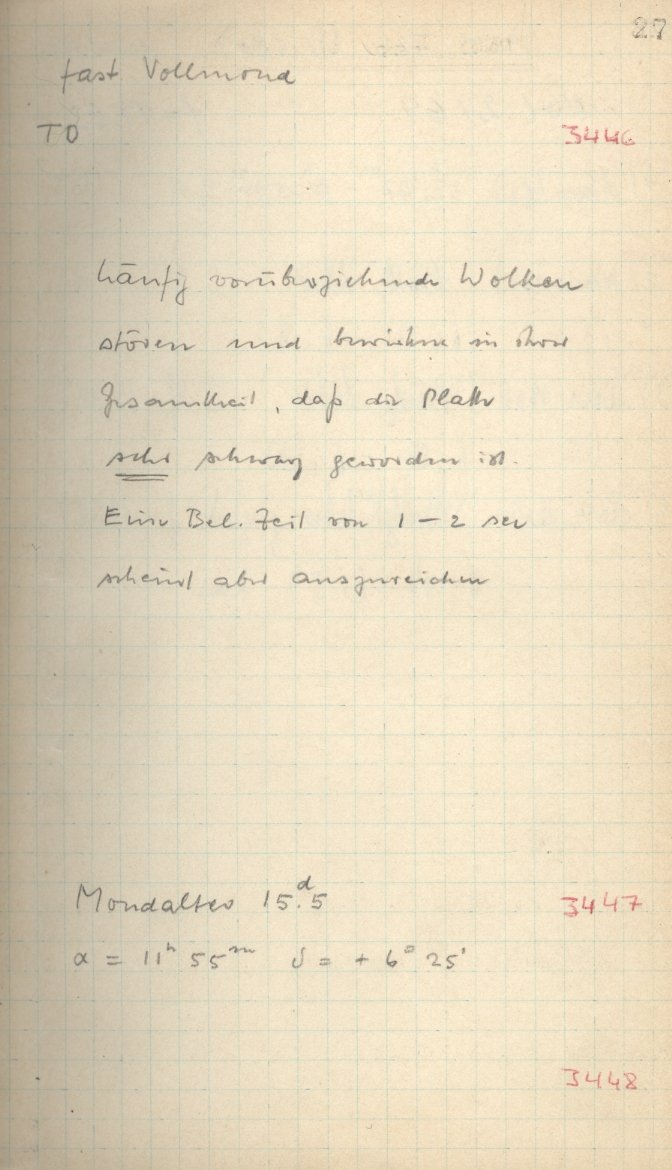 27
fast Vollmond
TO 3446
häufig vorüberziehende Wolken
stören und bewirken in ihrer
Gesamtheit, daß die Platte
sehr schwarz geworden ist.
Eine Bel. Zeit von 1 – 2 sec
scheint aber auszureichen
Mondalter 15.ᵈ5 3447
α = 11ʰ 55ᵐ δ = + 6° 25'
3448